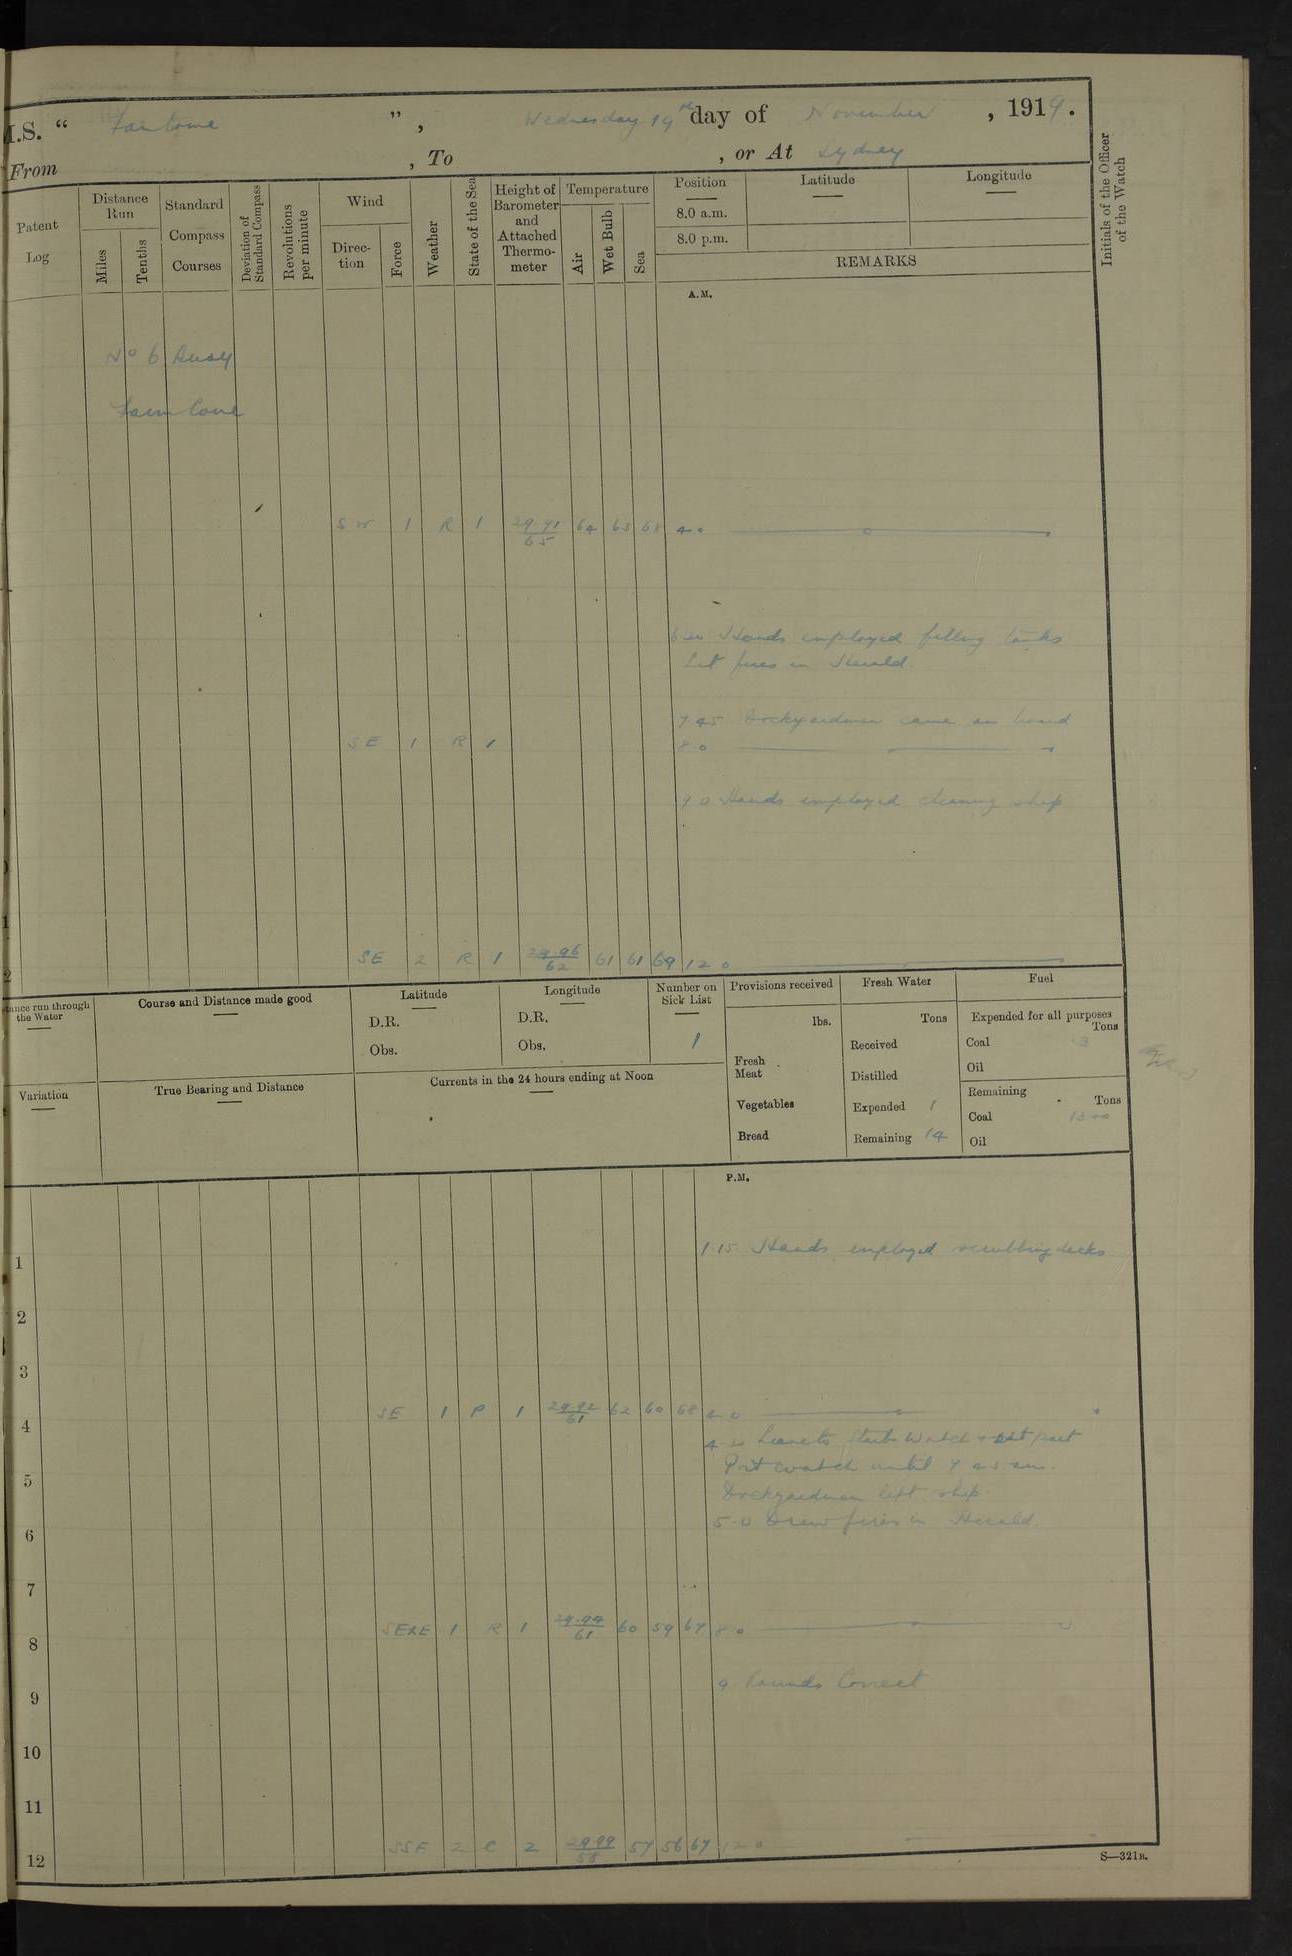 I.S. “ Fantome ” , Wednesday 19th day of November , 1919 .
From , To , or At Sydney
Patent Log
Distance Run
Miles
Tenths
Standard Compass Courses
Deviation of Standard Compass
Revolutions per minute
Wind
Direction
Force
Weather
State of the Sea
Height of Barometer and Attached Thermometer
Temperature
Air
Wet Bulb
Sea
Position
8.0 a.m.
8.0 p.m.
Latitude
Longitude
REMARKS
Initials of the Officer of the Watch
A.M.
No 6 Buoy
Farm Cove
SW 1 R 1 29.91 65 64 63 68 4 0
6 20 Hands employed filling tanks
Lit fires in Herald.
7 45 Dockyardmen came on board
SE 1 R 1 8 0
9 0 Hands employed cleaning ship
SE 2 R 1 29.96 62 61 61 69 12 0
Distance run through the Water
Course and Distance made good
Latitude
D.R.
Obs.
Longitude
D.R.
Obs.
Number on Sick List
1
Provisions received
lbs.
Fresh Meat
Vegetables
Bread
Fresh Water
Tons
Received
Distilled
Expended 1
Remaining 14
Fuel
Expended for all purposes
Tons
Coal 3
Oil
Remaining
Tons
Coal
Oil
Variation
True Bearing and Distance
Currents in the 24 hours ending at Noon
P.M.
1
1.15 Hands employed scrubbing decks
2
3
4
SE 1 R 1 29.92 61 62 60 68 4 0
Leave to Starb Watch part
Port watch until 7 45 am.
5
Dockyardmen left ship
5.0 Drew fires in Herald.
6
7
8
SExE 1 R 1 29.97 61 60 59 67 8 0
9 Rounds Correct
9
10
11
12
SSE 2 C 2 29.99 58 57 56 67 12 0
S—321B.